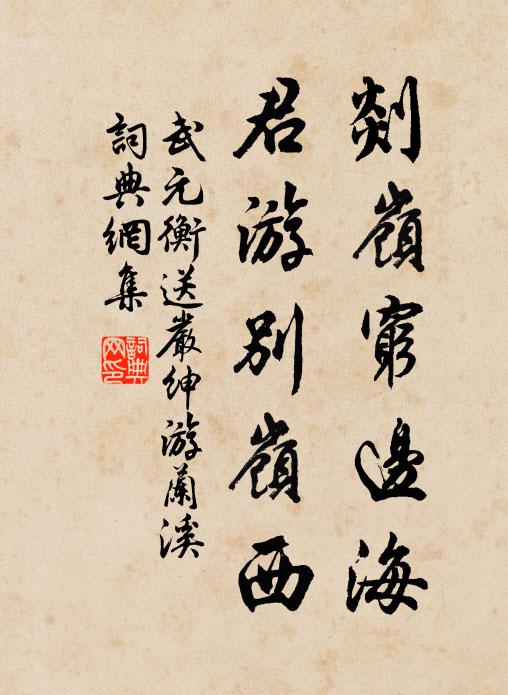 剡嶺窮邊海
君游別嶺西
武元衡送嚴紳游蘭溪
詞典網集
詞典網印